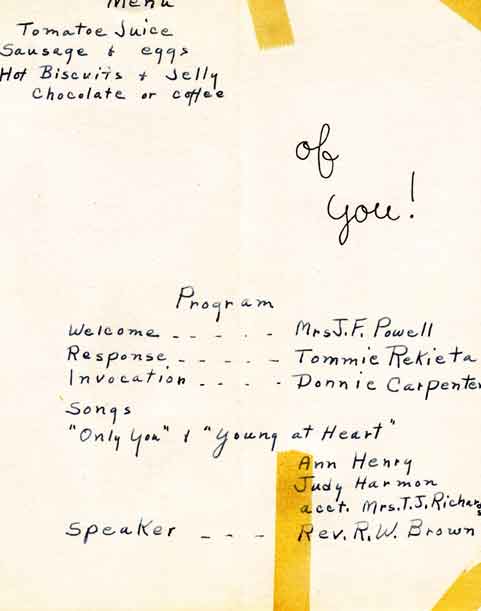 Menu
Tomatoe Juice
Sausage & eggs
Hot Biscuits & Jelly
Chocolate or coffee
of
you!
Program
Welcome - - - - - Mrs J.F. Powell
Response - - - - - Tommie Rekieta
Invocation - - - - Donnie Carpenter
Songs
"Only You" & "Young at Heart"
Ann Henry
Judy Harmon
acct. Mrs. T.J. Richards
Speaker - - - Rev. R.W. Brown